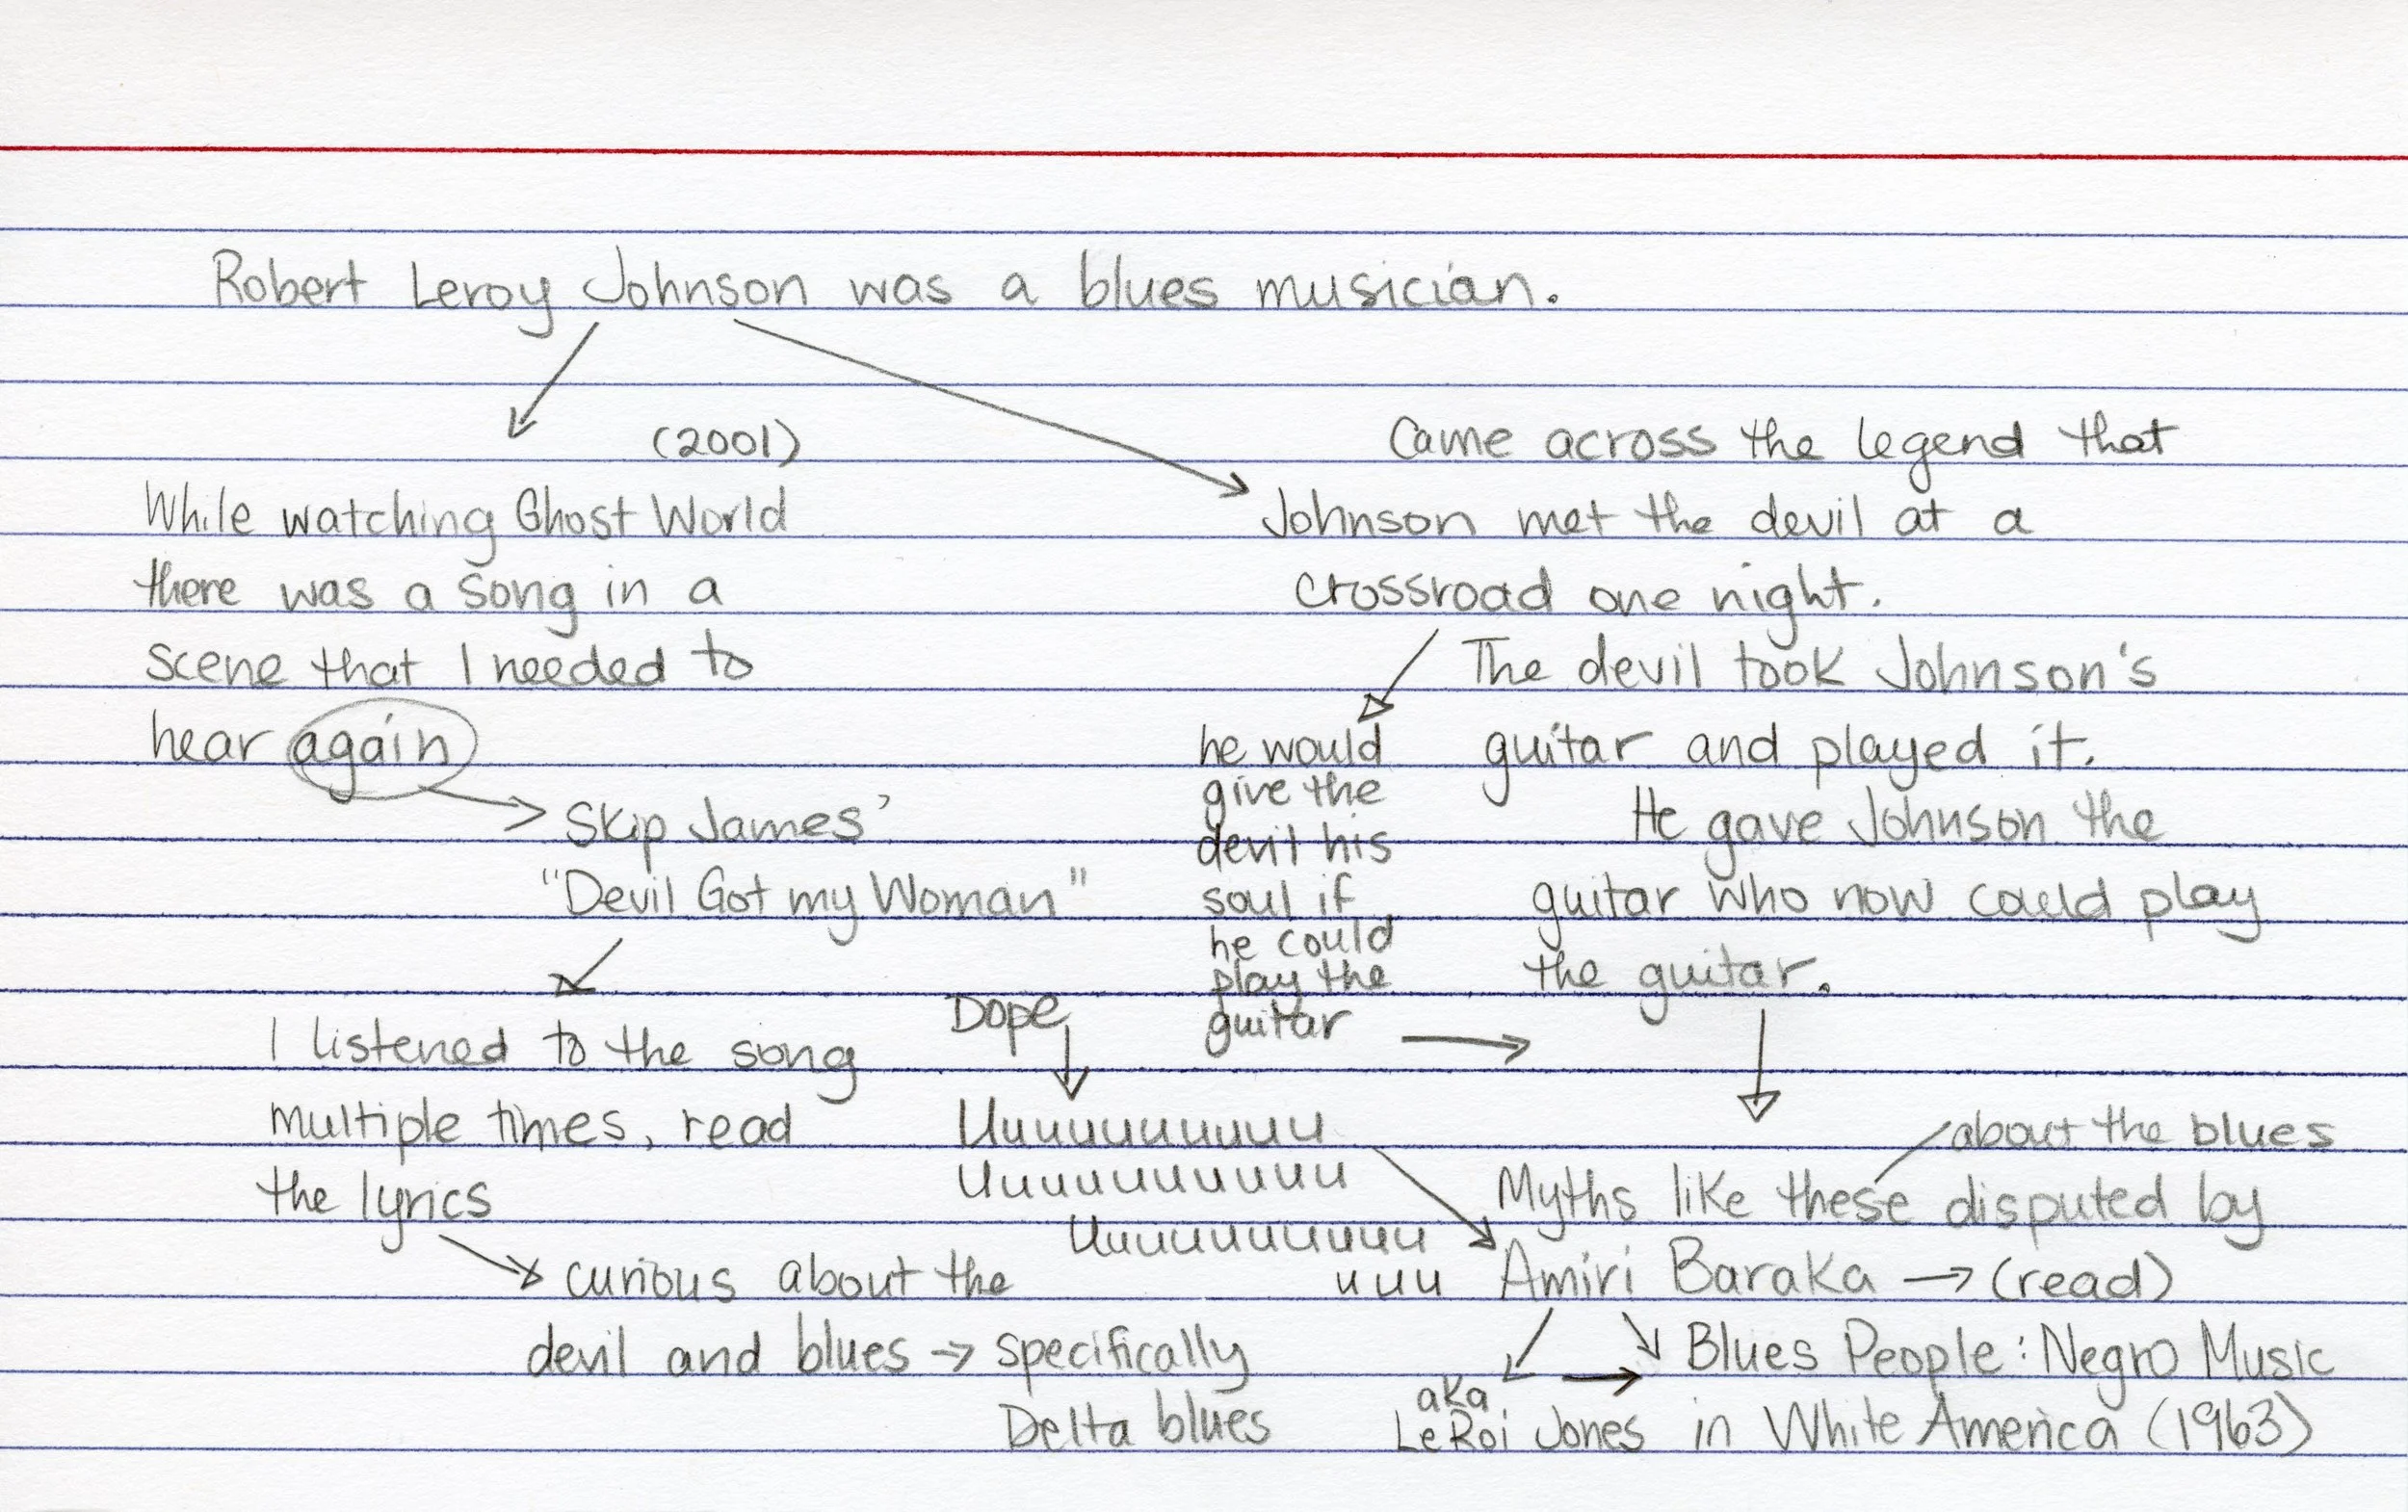 Robert Leroy Johnson was a blues musician.
(2001)
While watching Ghost World
there was a song in a
scene that I needed to
hear again
Skip James'
"Devil Got my Woman"
I listened to the song
multiple times, read
the lyrics
curious about the
devil and blues → specifically
Delta blues
Came across the legend that
Johnson met the devil at a
crossroad one night.
he would
give the
devil his
soul if
he could
play the
guitar
The devil took Johnson's
guitar and played it.
He gave Johnson the
guitar who now could play
the guitar.
Dope
Uuuuuuuuuuu
Uuuuuuuuuuu
Uuuuuuuuuuu
uuu
about the blues
Myths like these disputed by
Amiri Baraka → (read)
aka
LeRoi Jones
Blues People: Negro Music
in White America (1963)